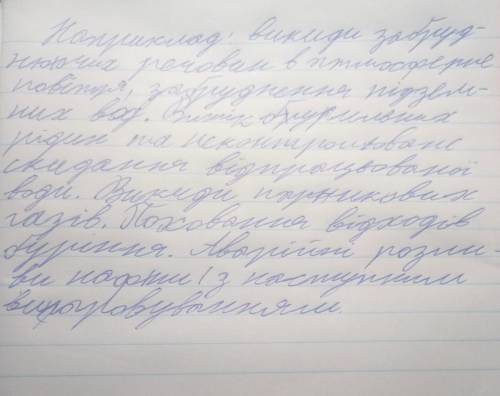 Наприклад: викиди забруд-
нюючих речовин в атмосферне
повітря, забруднення підзем-
них вод. Витік бурильних
рідин та неконтрольоване
скидання відпрацьованої
води. Викиди парникових
газів. Поховання відходів
буріння. Аварійні розли-
ви нафти, з наступним
випаровуванням.